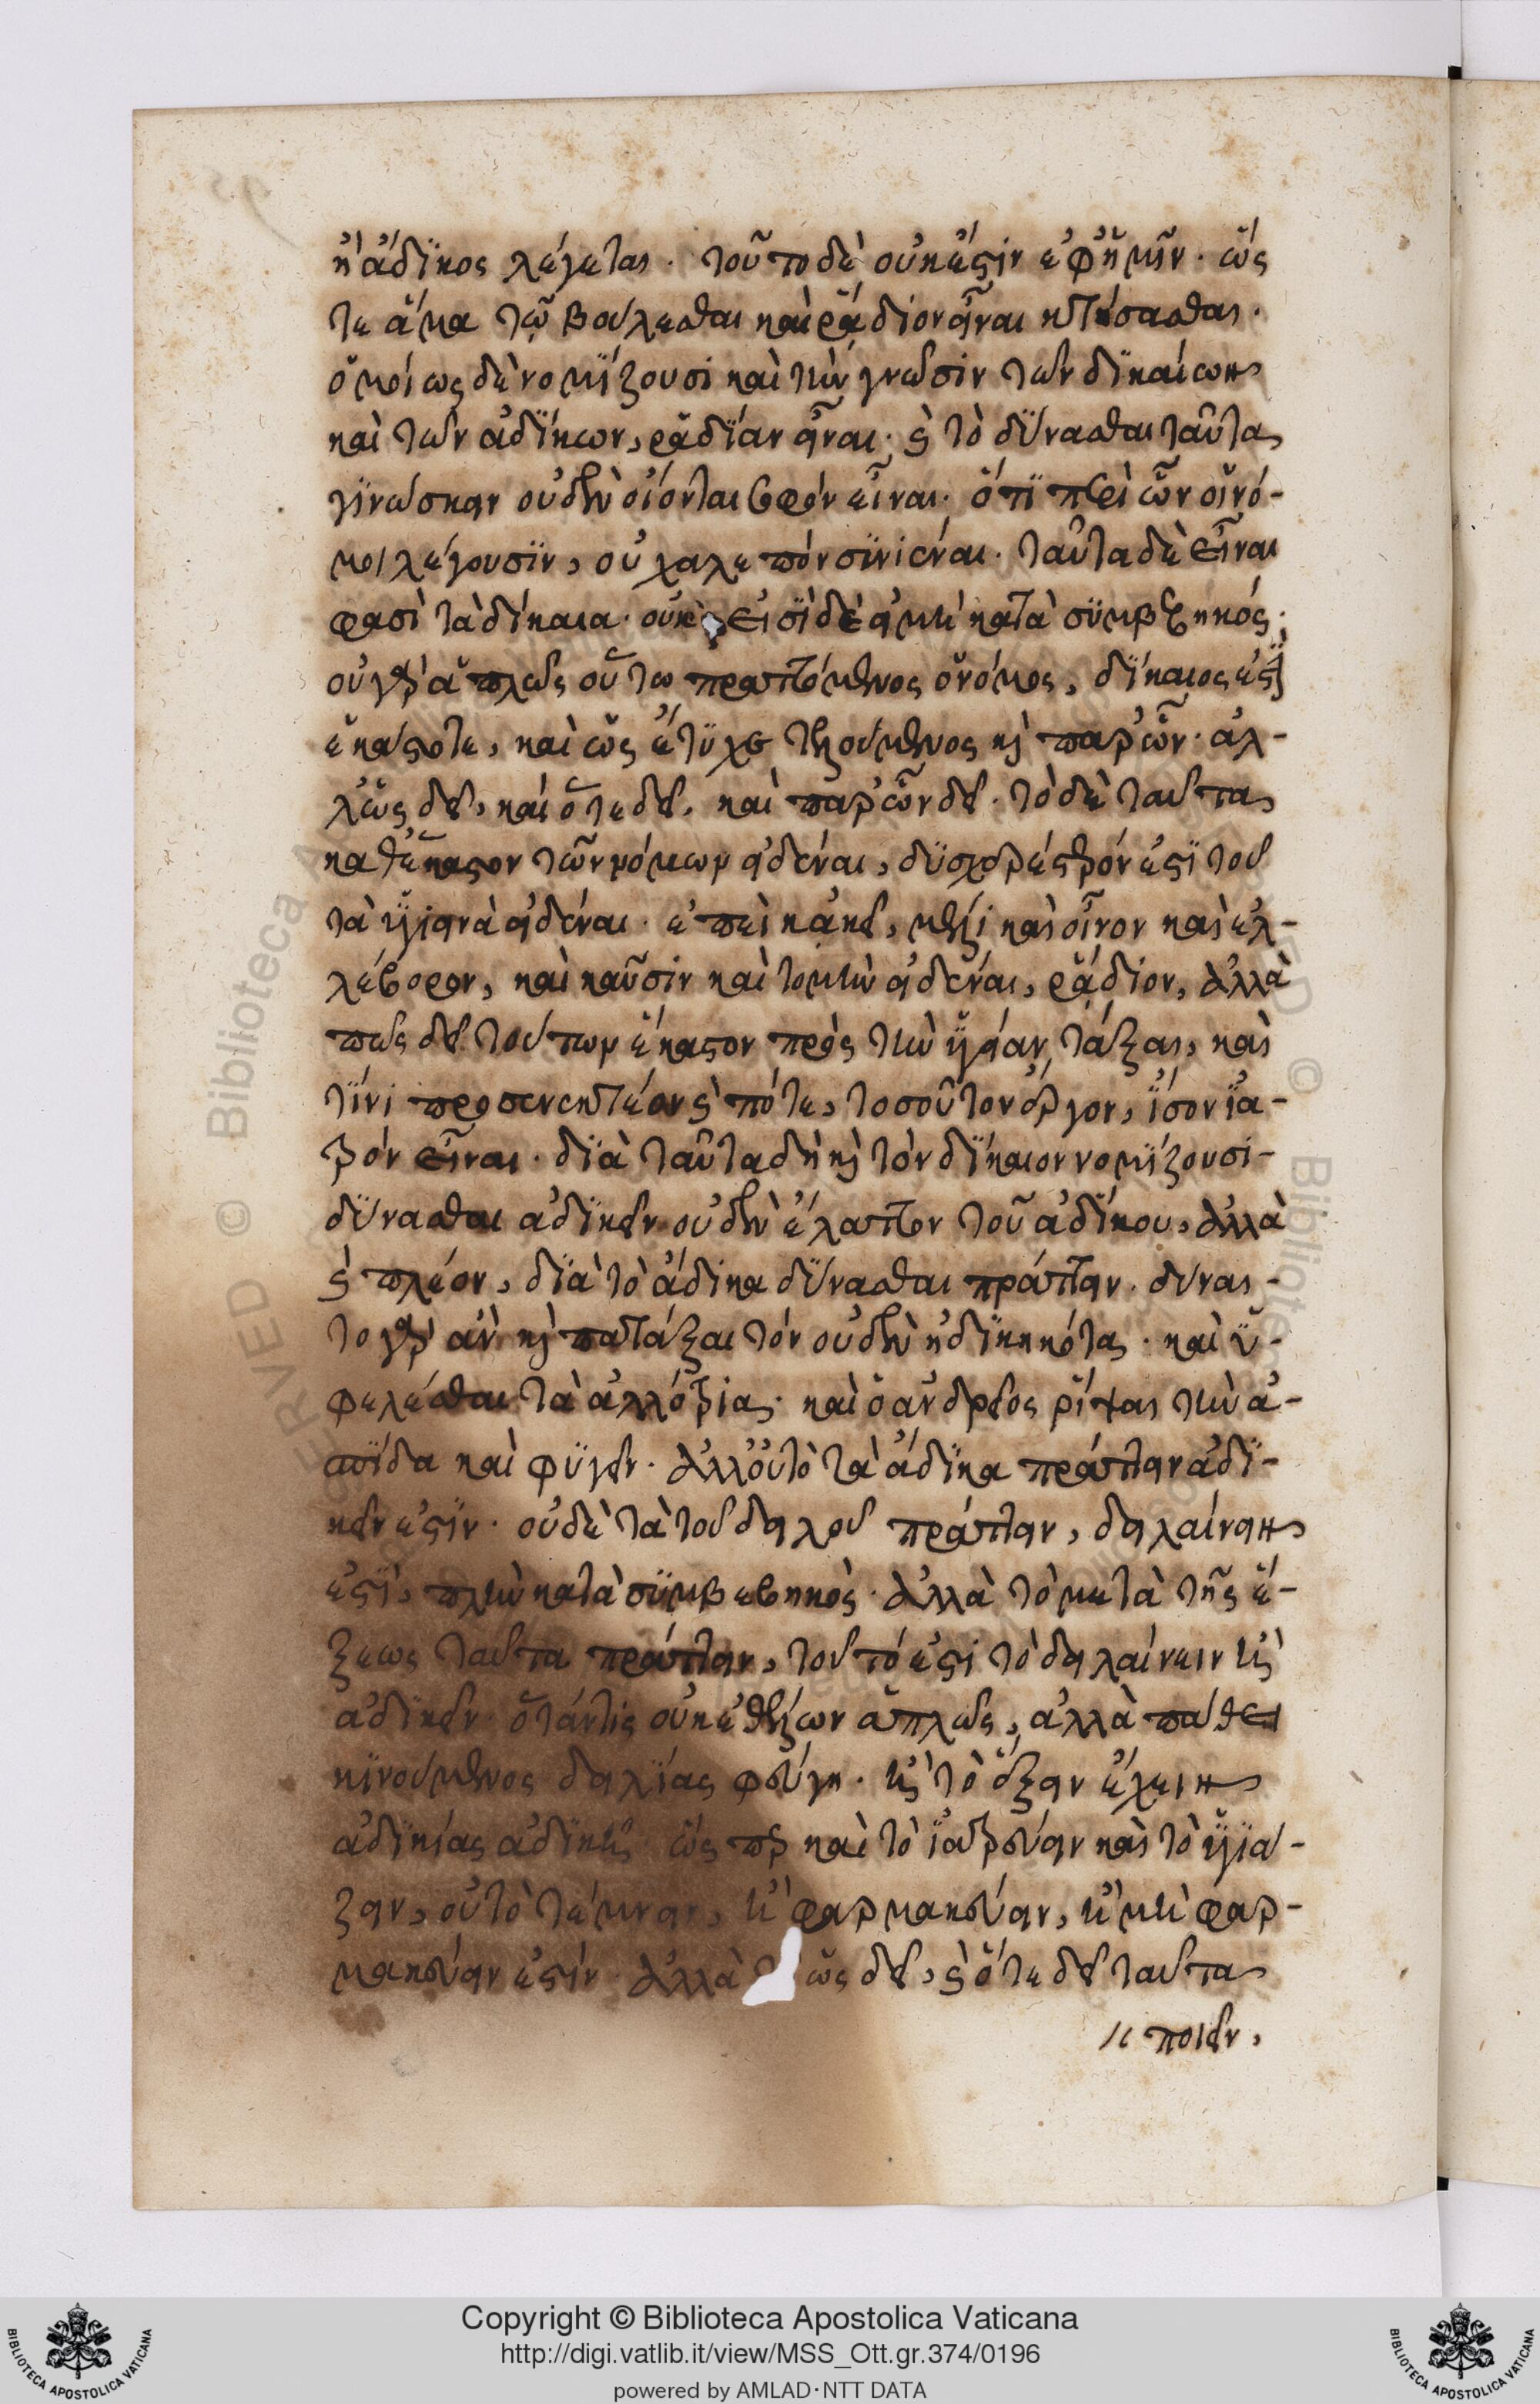 ἢ ἄδϊκος λέγεται. τοῦτο δὲ οὐκ ἔστιν ἐφ' ἡμῖν. ὥς
τε ἅμα τῷ βούλεσθαι καὶ ῥᾴδιον εἶναι κτήσασθαι.
ὁμοίως δὲ νομίζουσι καὶ τὴν γνῶσιν τῶν δϊκαίων
καὶ τῶν ἀδίκων, ῥαδίαν εἶναι. καὶ τὸ δύνασθαι ταῦτα
γϊνώσκειν οὐδὲν οἴονται σοφὸν εἶναι. ὅτι περὶ ὧν οἱ νό-
μοι λέγουσϊν, οὐ χαλεπὸν σϋνιέναι. ταῦτα δὲ εἶναι
φασὶ τὰ δίκαια. οὐκ εἰσὶ δὲ εἰ μὴ κατὰ σϋμβεβηκός.
οὐ γὰρ ἁπλῶς οὕτω πραττόμενος ὁ νόμος, δίκαιος ἐστὶ
ἑκάστοτε, καὶ ὡς ἔτϋχε τηρούμενος καὶ παρ' ὧν. ἀλ-
λ' ὡς δεῖ, καὶ ὅτε δεῖ, καὶ παρ' ὧν δεῖ. τὸ δὲ ταῦτα
καθ' ἕκαστον τῶν νόμων εἰδέναι, δϋσχερέστερόν ἐστϊ τοῦ
τὰ ὑγιεινὰ εἰδέναι. ἐπεὶ κἀκεῖ, μέλι καὶ οἶνον καὶ ἑλ-
λέβορον, καὶ καῦσιν καὶ τομὴν εἰδέναι, ῥᾴδιον, ἀλλὰ
πῶς δεῖ τούτων ἕκαστον πρὸς τὴν ὑγείαν τάξαι, καὶ
τίνι προσενεκτέον καὶ πότε, τοσοῦτον ἔργον, ἴσον ἰα-
τρὸν εἶναι. δϊὰ ταῦτα δὴ καὶ τὸν δίκαιον νομίζουσι
δύνασθαι ἀδικεῖν οὐδὲν ἔλαττον τοῦ ἀδίκου, ἀλλὰ
καὶ πλέον, δϊὰ τὸ ἄδικα δύνασθαι πράττειν. δύναι-
το γὰρ ἂν καὶ πατάξαι τὸν οὐδὲν ἠδϊκηκότα. καὶ ὑ-
φελέσθαι τὰ ἀλλότρια. καὶ ὁ ἀνδρεῖος ῥῖψαι τὴν ἀ-
σπίδα καὶ φϋγεῖν. ἀλλ' οὐ τὸ τὰ ἄδϊκα πράττειν ἀδϊ-
κεῖν ἐστϊν. οὐδὲ τὰ τοῦ δειλοῦ πράττειν, δειλαίνειν
ἐστὶ, πλὴν κατὰ σϋμβεβηκὸς. ἀλλὰ τὸ μετὰ τῆς ἕ-
ξεως ταῦτα πράττειν, τοῦτό ἐστι τὸ δειλαίνειν ἢ
ἀδϊκεῖν. ὅταν τὶς οὐκ ἐθέλων ἁπλῶς, ἀλλὰ πάθει
κϊνούμενος δειλίας φεύγη. ἢ τὸ ἕξειν ἔχειν
ἀδϊκίας ἀδϊκῇ. ὥσπερ καὶ τὸ ἰατρεύειν καὶ τὸ ὑγϊά-
ζειν, οὐ τὸ τέμνειν, ἢ φαρμακεύειν, ἢ μὴ φαρ-
μακεύειν ἐστίν. ἀλλὰ ὡς δεῖ, καὶ ὅτε δεῖ ταῦτα
ποιεῖν,
Copyright © Biblioteca Apostolica Vaticana
http://digi.vatlib.it/view/MSS_Ott.gr.374/0196
powered by AMLAD·NTT DATA
BIBLIOTECA APOSTOLICA VATICANA
BIBLIOTECA APOSTOLICA VATICANA